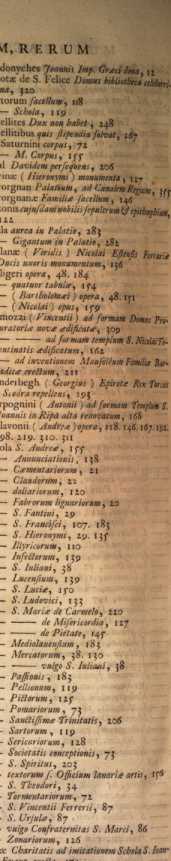 M, RERUM
donyches Joannis Imp. Græci dona, 12
otæ de S. Felice Domus bibliotheca celeberri
na, 320
torum sacellum, 118
— Schola, 119
ellites Dux non habet, 248
ellitibus quis stipendia solvat, 267
Saturnini corpus, 72
— M. Corpus, 155
ul Davidem persequens, 206
vinæ (Hieronymi) monumenta, 127
vorgnan Palatium, ad Canalem Regium, 355
vorgnanæ Familiæ sacellum, 146
onis cujusdam nobilis sepulcrum & epitaphium,
122
ala aurea in Palatio, 283
— Gigantum in Palatio, 282
lanæ (Viralis) Nicolai Estensis Ferrariæ
Ducis uxoris monumentum, 136
ligeri opera, 48. 184
— quatuor tabulæ, 154
— (Bartholomæi) opera, 48. 151
— (Nicolai) opus, 159
mozzi (Vincentii) ad formam Domus Pro-
uratoriæ novæ ædificatæ, 309
— ad formam templum S. Nicolai To-
entinatis ædificatum, 162
— ad inventionem Mausoleum Familiæ Bar-
adicæ erectum, 211
nderbegh (Georgius) Epirotæ Rex Turcas
Scodra repellens, 293
rpognini (Antonii) ad formam Templum S.
Joannis in Ripa alta renovatum, 168
lavonii (Andreæ) opera, 118. 146. 167. 192.
98. 219. 310. 311
ola S. Andreæ, 155
— Annunciationis, 138
— Cæmentariorum, 21
— Claudorum, 22
— doliariorum, 120
— Fabrorum lignariorum, 20
— S. Fantini, 29
— S. Francisci, 107. 183
— S. Hieronymi, 29. 135
— Illyricorum, 110
— Infectorum, 139
— S. Iuliani, 38
— Lucensium, 139
— S. Luciæ, 150
— S. Ludovici, 133
— S. Mariæ de Carmelo, 220
— de Misericordia, 127
— de Pietate, 145
— Mediolanensium, 183
— Mercatorum, 38. 130
— vulgo S. Iuliani, 38
— Passionis, 183
— Pellionum, 119
— Pictorum, 125
— Pomariorum, 73
— Sanctissimæ Trinitatis, 206
— Sartorum, 119
— Sericariorum, 128
— Societatis conceptionis, 73
— S. Spiritus, 203
— textorum s. Officium lanariæ artis, 156
— S. Theodori, 34
— Tormentariorum, 72
— S. Vincentii Ferrerii, 87
— S. Ursulæ, 87
— vulgo Confraternitas S. Marci, 86
— Zonariorum, 126
Charitatis ad imitationem Schola S. Joan-